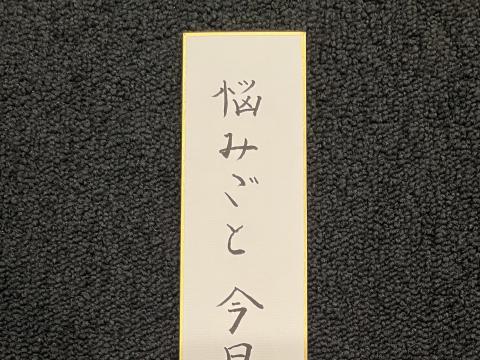 悩みごと 今